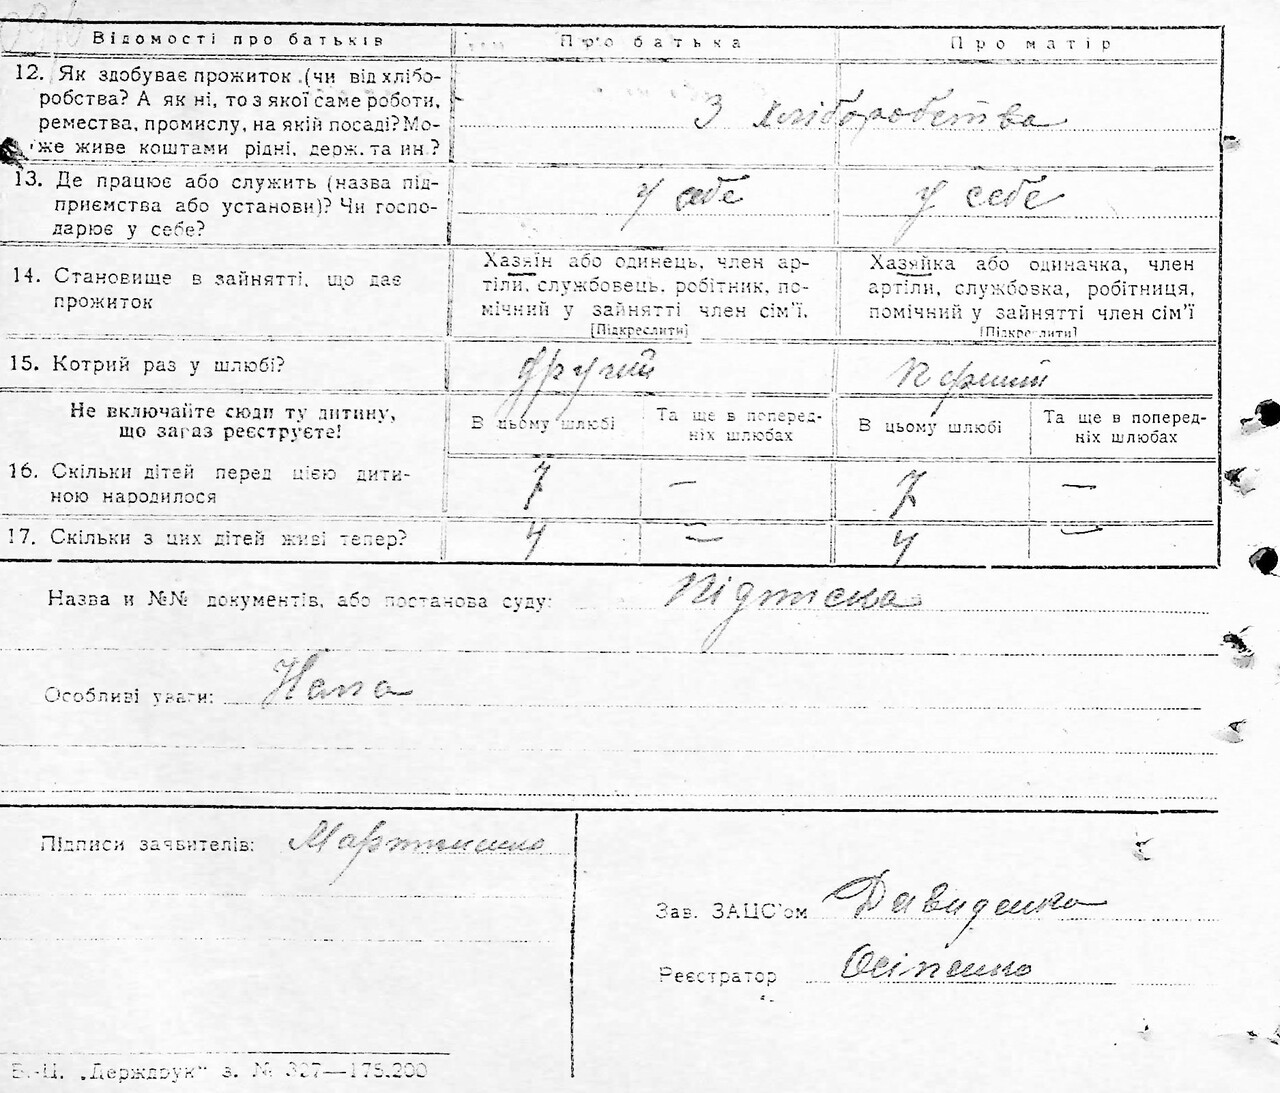 Відомості про батьків
Про батька
Про матір
12. Як здобуває прожиток (чи від хлібо-
робства? А як ні, то з якої саме роботи,
ремества, промислу, на якій посаді? Мо-
же живе коштами рідні, держ. та ин.?
З хліборобства
13. Де працює або служить (назва під-
приємства або установи)? Чи госпо-
дарює у себе?
У себе
У себе
14. Становище в зайнятті, що дає
прожиток
Хазяїн або одинець, член ар-
тіли, службовець, робітник, по-
мічний у зайнятті член сім'ї.
[Підкреслити]
Хазяйка або одиначка, член
артіли, службовка, робітниця,
помічний у зайнятті член сім'ї
[Підкреслити]
15. Котрий раз у шлюбі?
другий
перший
Не включайте сюди ту дитину,
що зараз реєструєте!
В цьому шлюбі
Та ще в поперед-
ніх шлюбах
В цьому шлюбі
Та ще в поперед-
ніх шлюбах
16. Скільки дітей перед цією дити-
ною народилося
7
—
7
—
17. Скільки з цих дітей живі тепер?
4
—
4
—
Назва и №№ документів, або постанова суду:
Підписка
Особливі уваги:
Підписи заявителів:
Мартиненко
Зав. ЗАЦС'ом
Давиденко
Реєстратор
Осіпенко
В.-Ц. „Держдрук" з. № 327—175.200